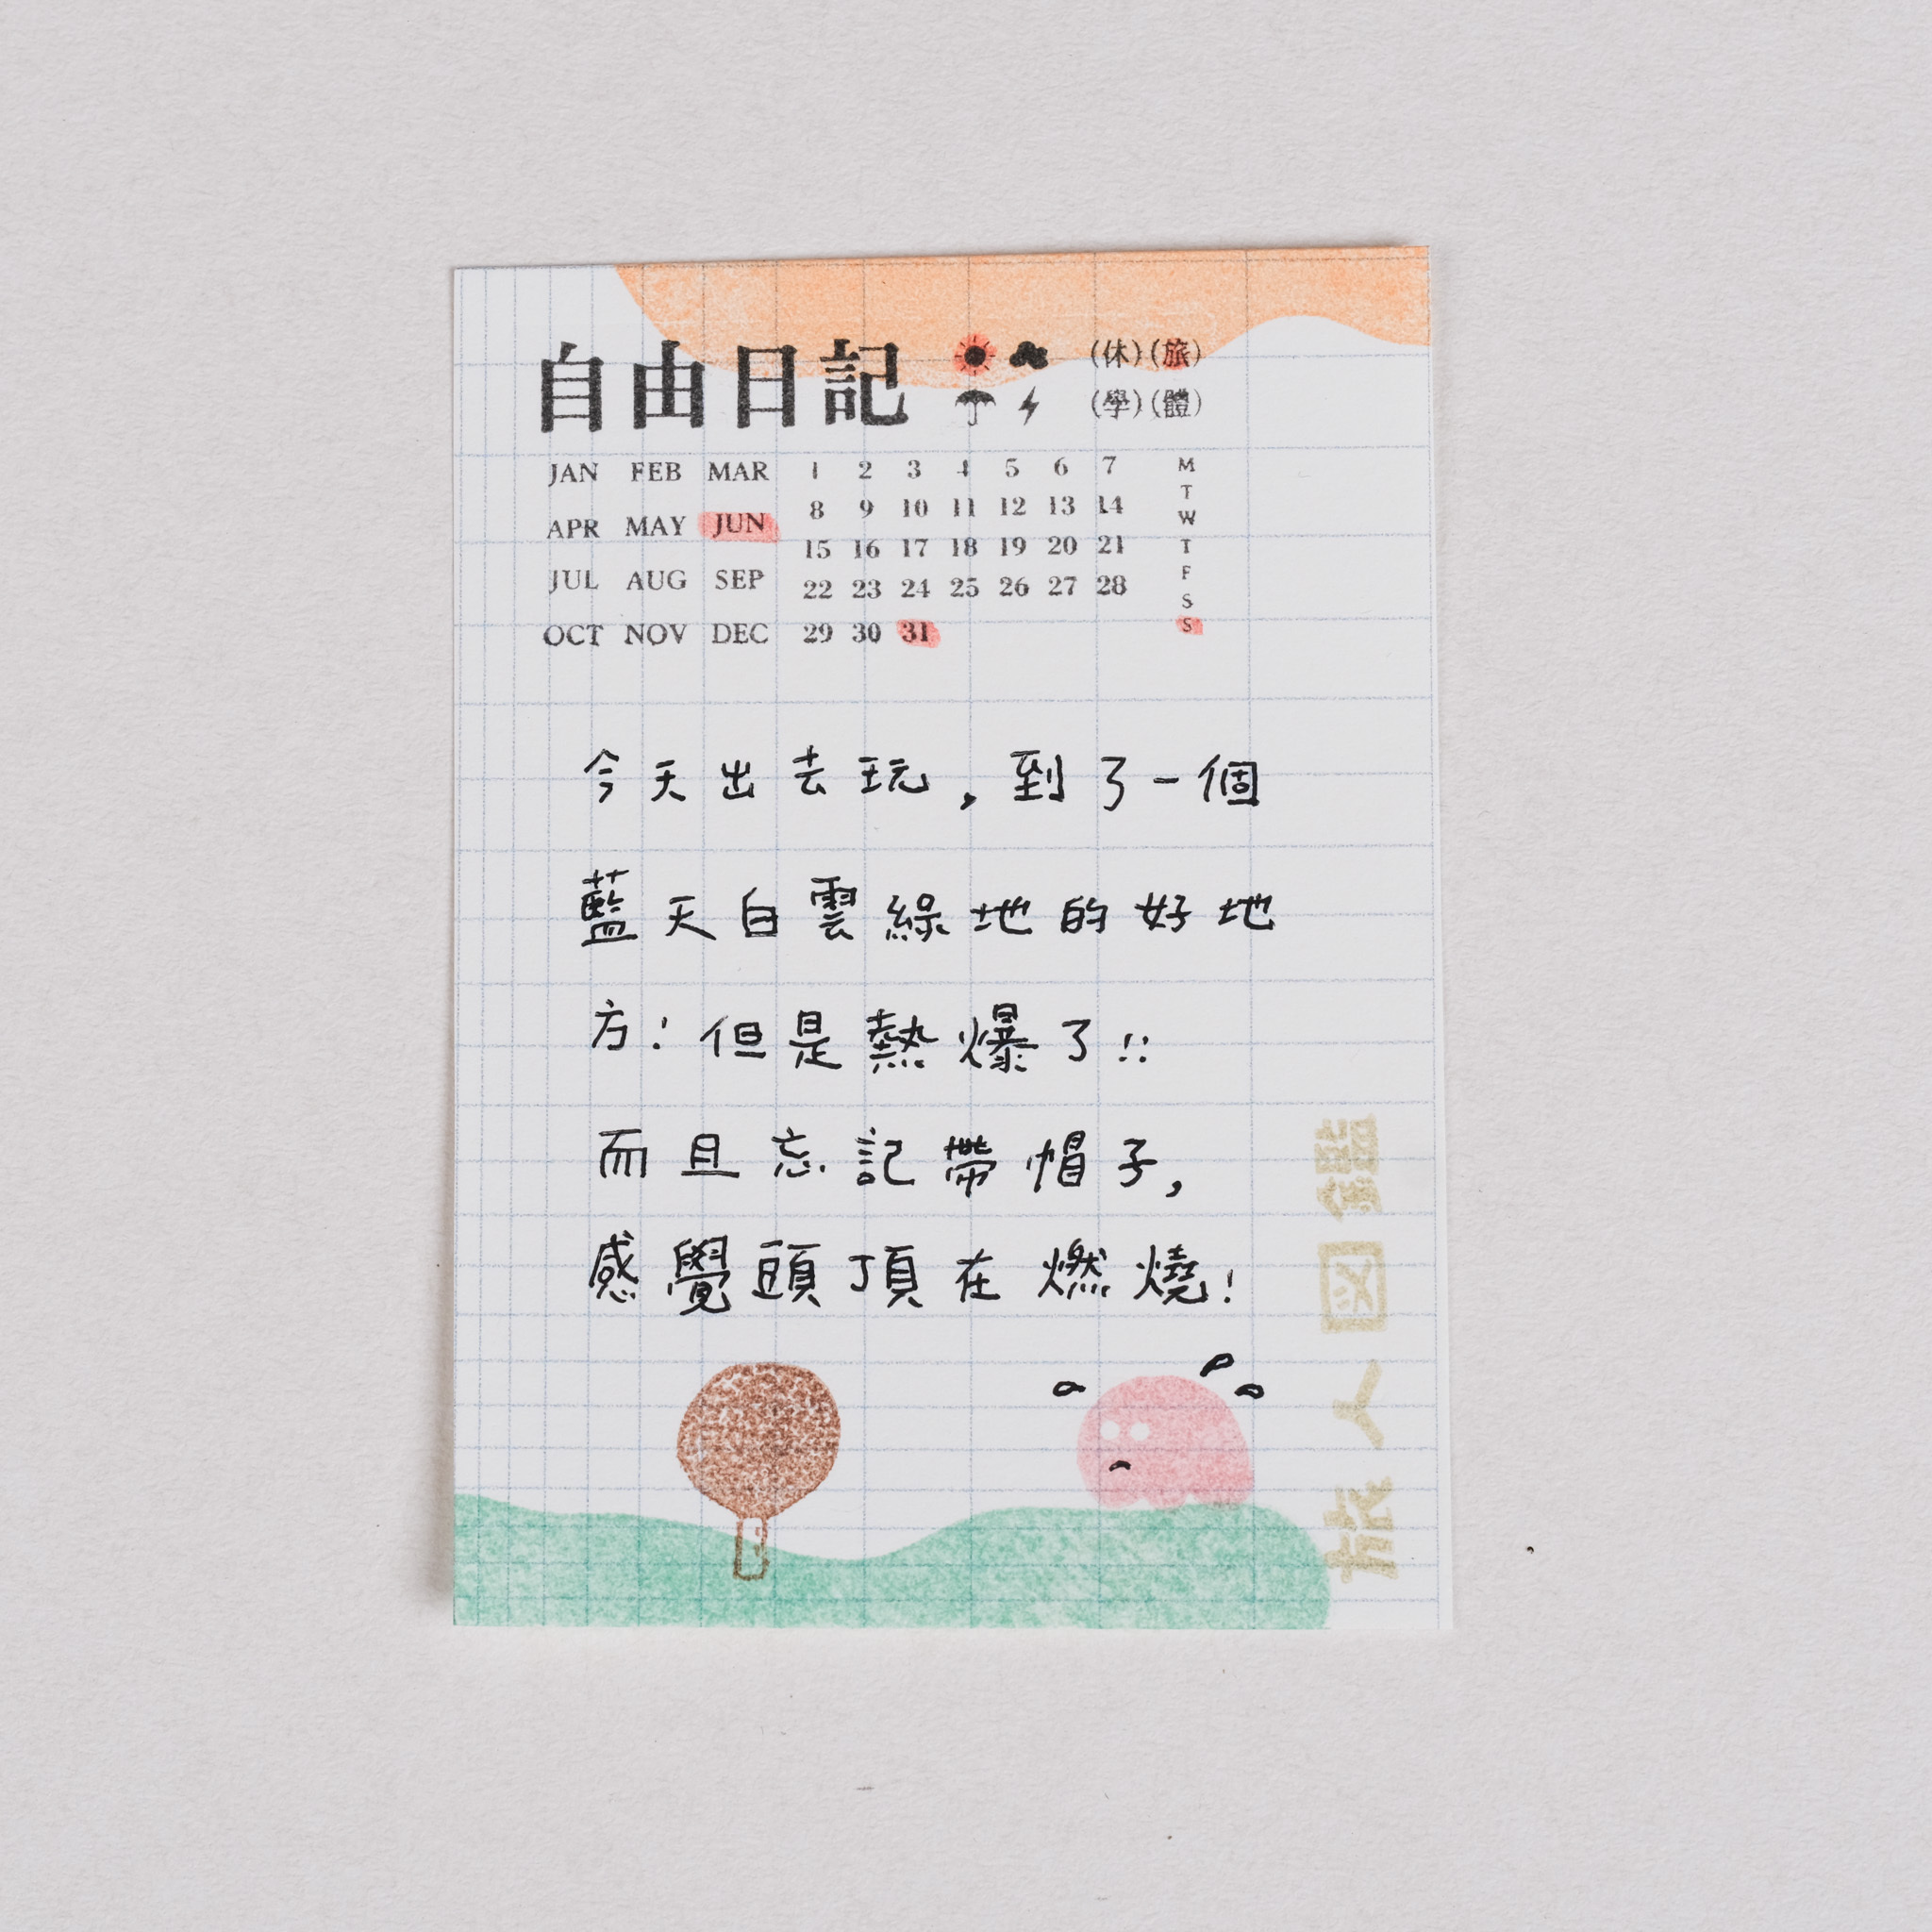 自由日記
(休)(旅)
(學)(體)
JAN FEB MAR
APR MAY JUN
JUL AUG SEP
OCT NOV DEC
1 2 3 4 5 6 7
8 9 10 11 12 13 14
15 16 17 18 19 20 21
22 23 24 25 26 27 28
29 30 31
M
T
W
T
F
S
S
今天出去玩,到了一個
藍天白雲綠地的好地
方!但是熱爆了!!
而且忘記帶帽子,
感覺頭頂在燃燒!
旅人図鑑